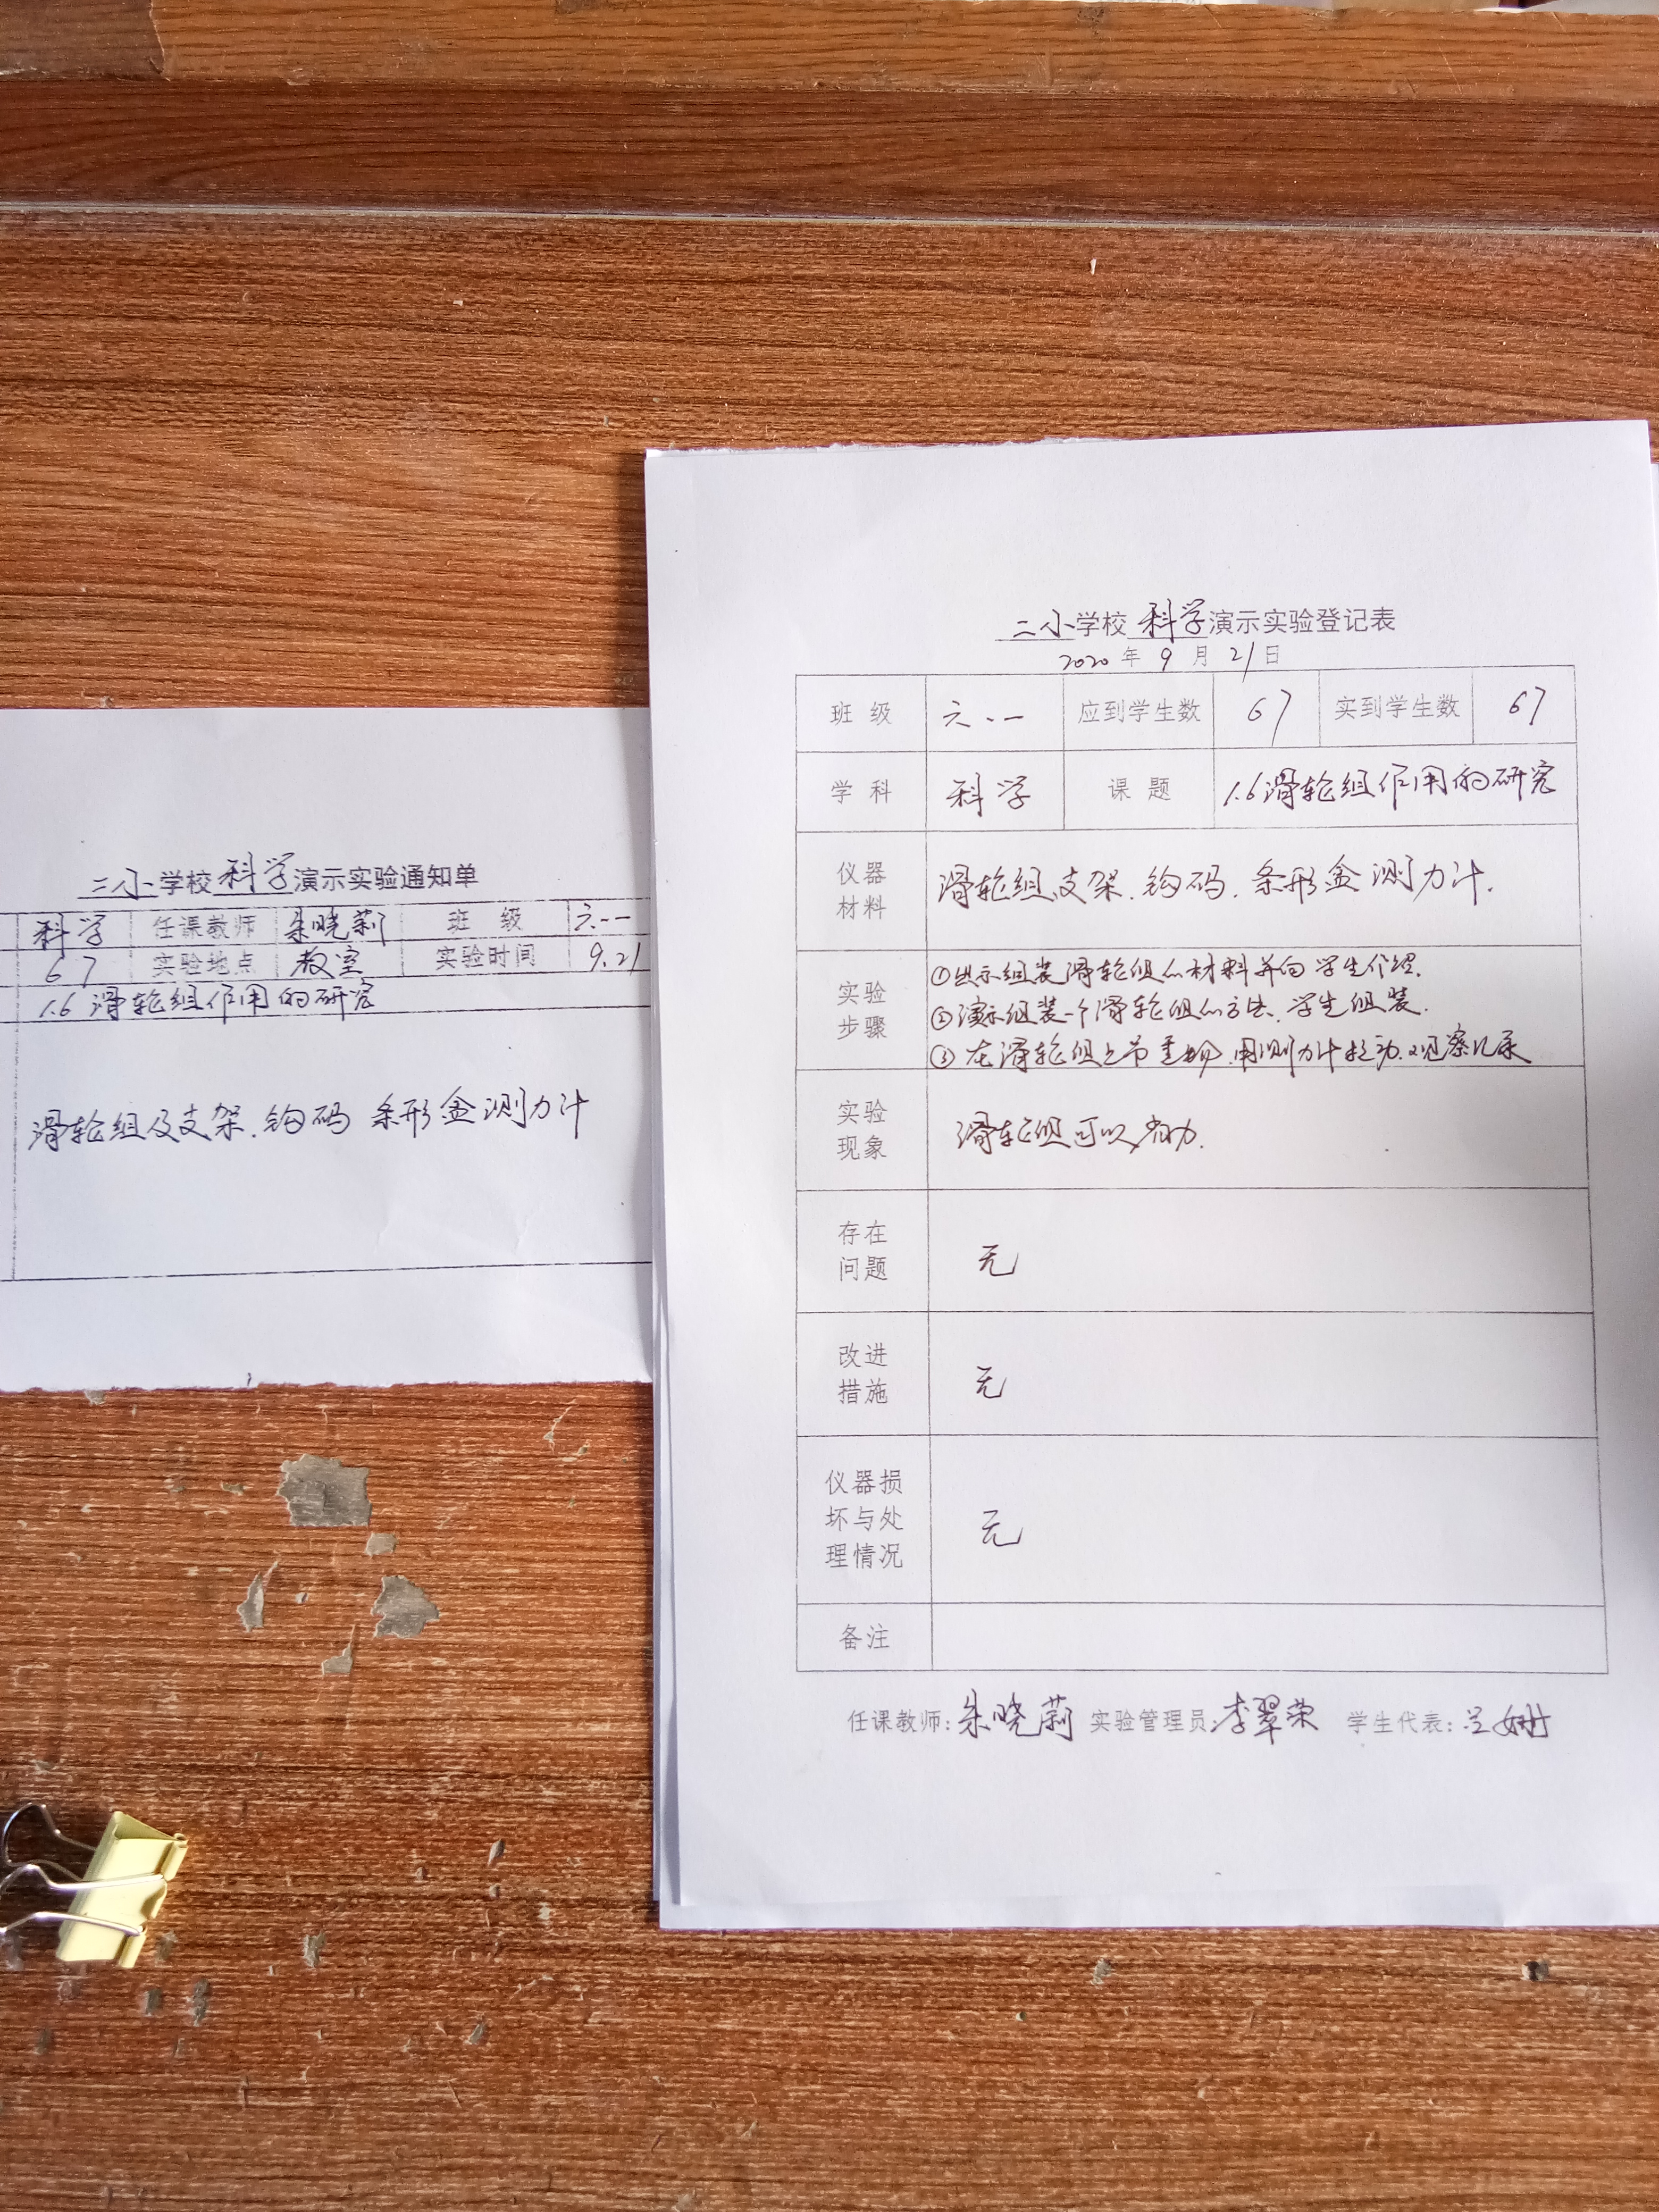 二小学校科学演示实验通知单
科学 任课教师 朱晓莉 班 级 六.一
67 实验地点 教室 实验时间 9.21
1.6 滑轮组作用的研究
滑轮组及支架.钩码 条形盒测力计
二小学校科学演示实验登记表
2020年9月21日
班 级 六.一 应到学生数 67 实到学生数 67
学 科 科学 课 题 1.6滑轮组作用的研究
仪器
材料
滑轮组及支架.钩码.条形盒测力计.
实验
步骤
①出示组装滑轮组的材料并向学生介绍.
②演示组装一个滑轮组的方法、学生组装.
③在滑轮组上吊重物.用测力计拉动.观察记录
实验
现象
滑轮组可以省力.
存在
问题
无
改进
措施
无
仪器损
坏与处
理情况
无
备注
任课教师:朱晓莉 实验管理员:李翠荣 学生代表:姗